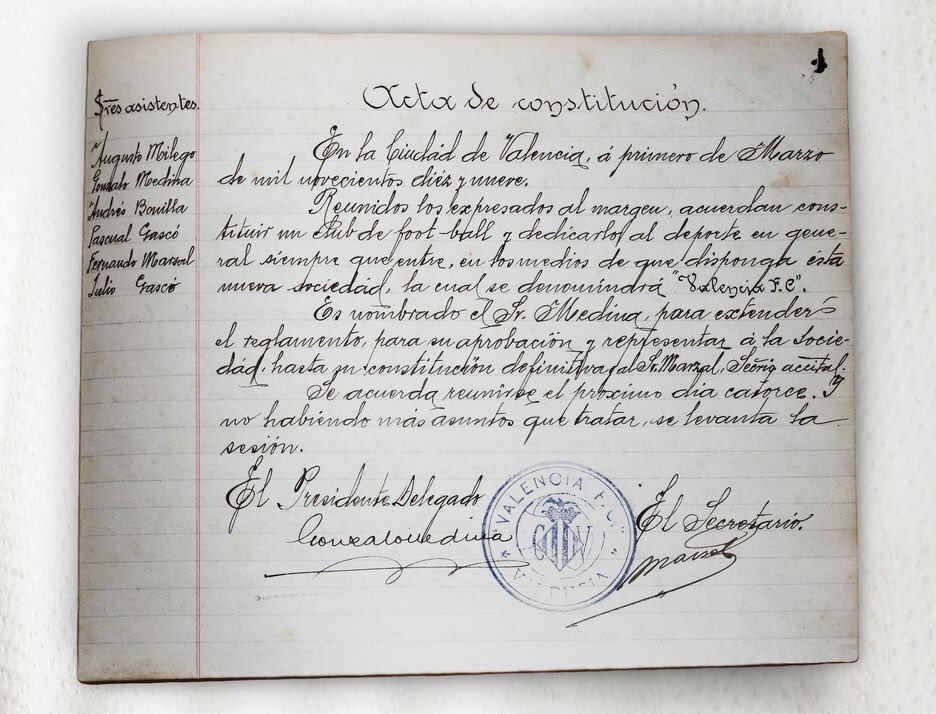 1
Sres asistentes.
Augusto Milego
Gonzalo Medina
Andrés Bonilla
Pascual Gascó
Fernando Marsal
Julio Gascó
Acta de constitución.
En la Ciudad de Valencia, á primero de Marzo
de mil novecientos diéz y nueve.
Reunidos los expresados al margen, acuerdan cons-
tituir un club de foot-ball y dedicarlo, al deporte en gene-
ral siempre que entre, en los medios de que disponga ésta
nueva sociedad, la cual se denominará "Valencia F.C".
Es nombrado el Sr. Medina, para extender
el reglamento, para su aprobación y representar á la Socie-
dad, hasta su constitución definitiva y al Sr. Marsal, Secrio accital.
Se acuerda reunirse el próximo dia catorce. Y
no habiendo más asuntos que tratar, se levanta la
sesión.
El Presidente Delegado
Gonzalo Medina
VALENCIA F.C.
VALENCIA
El Secretario.
Marsal